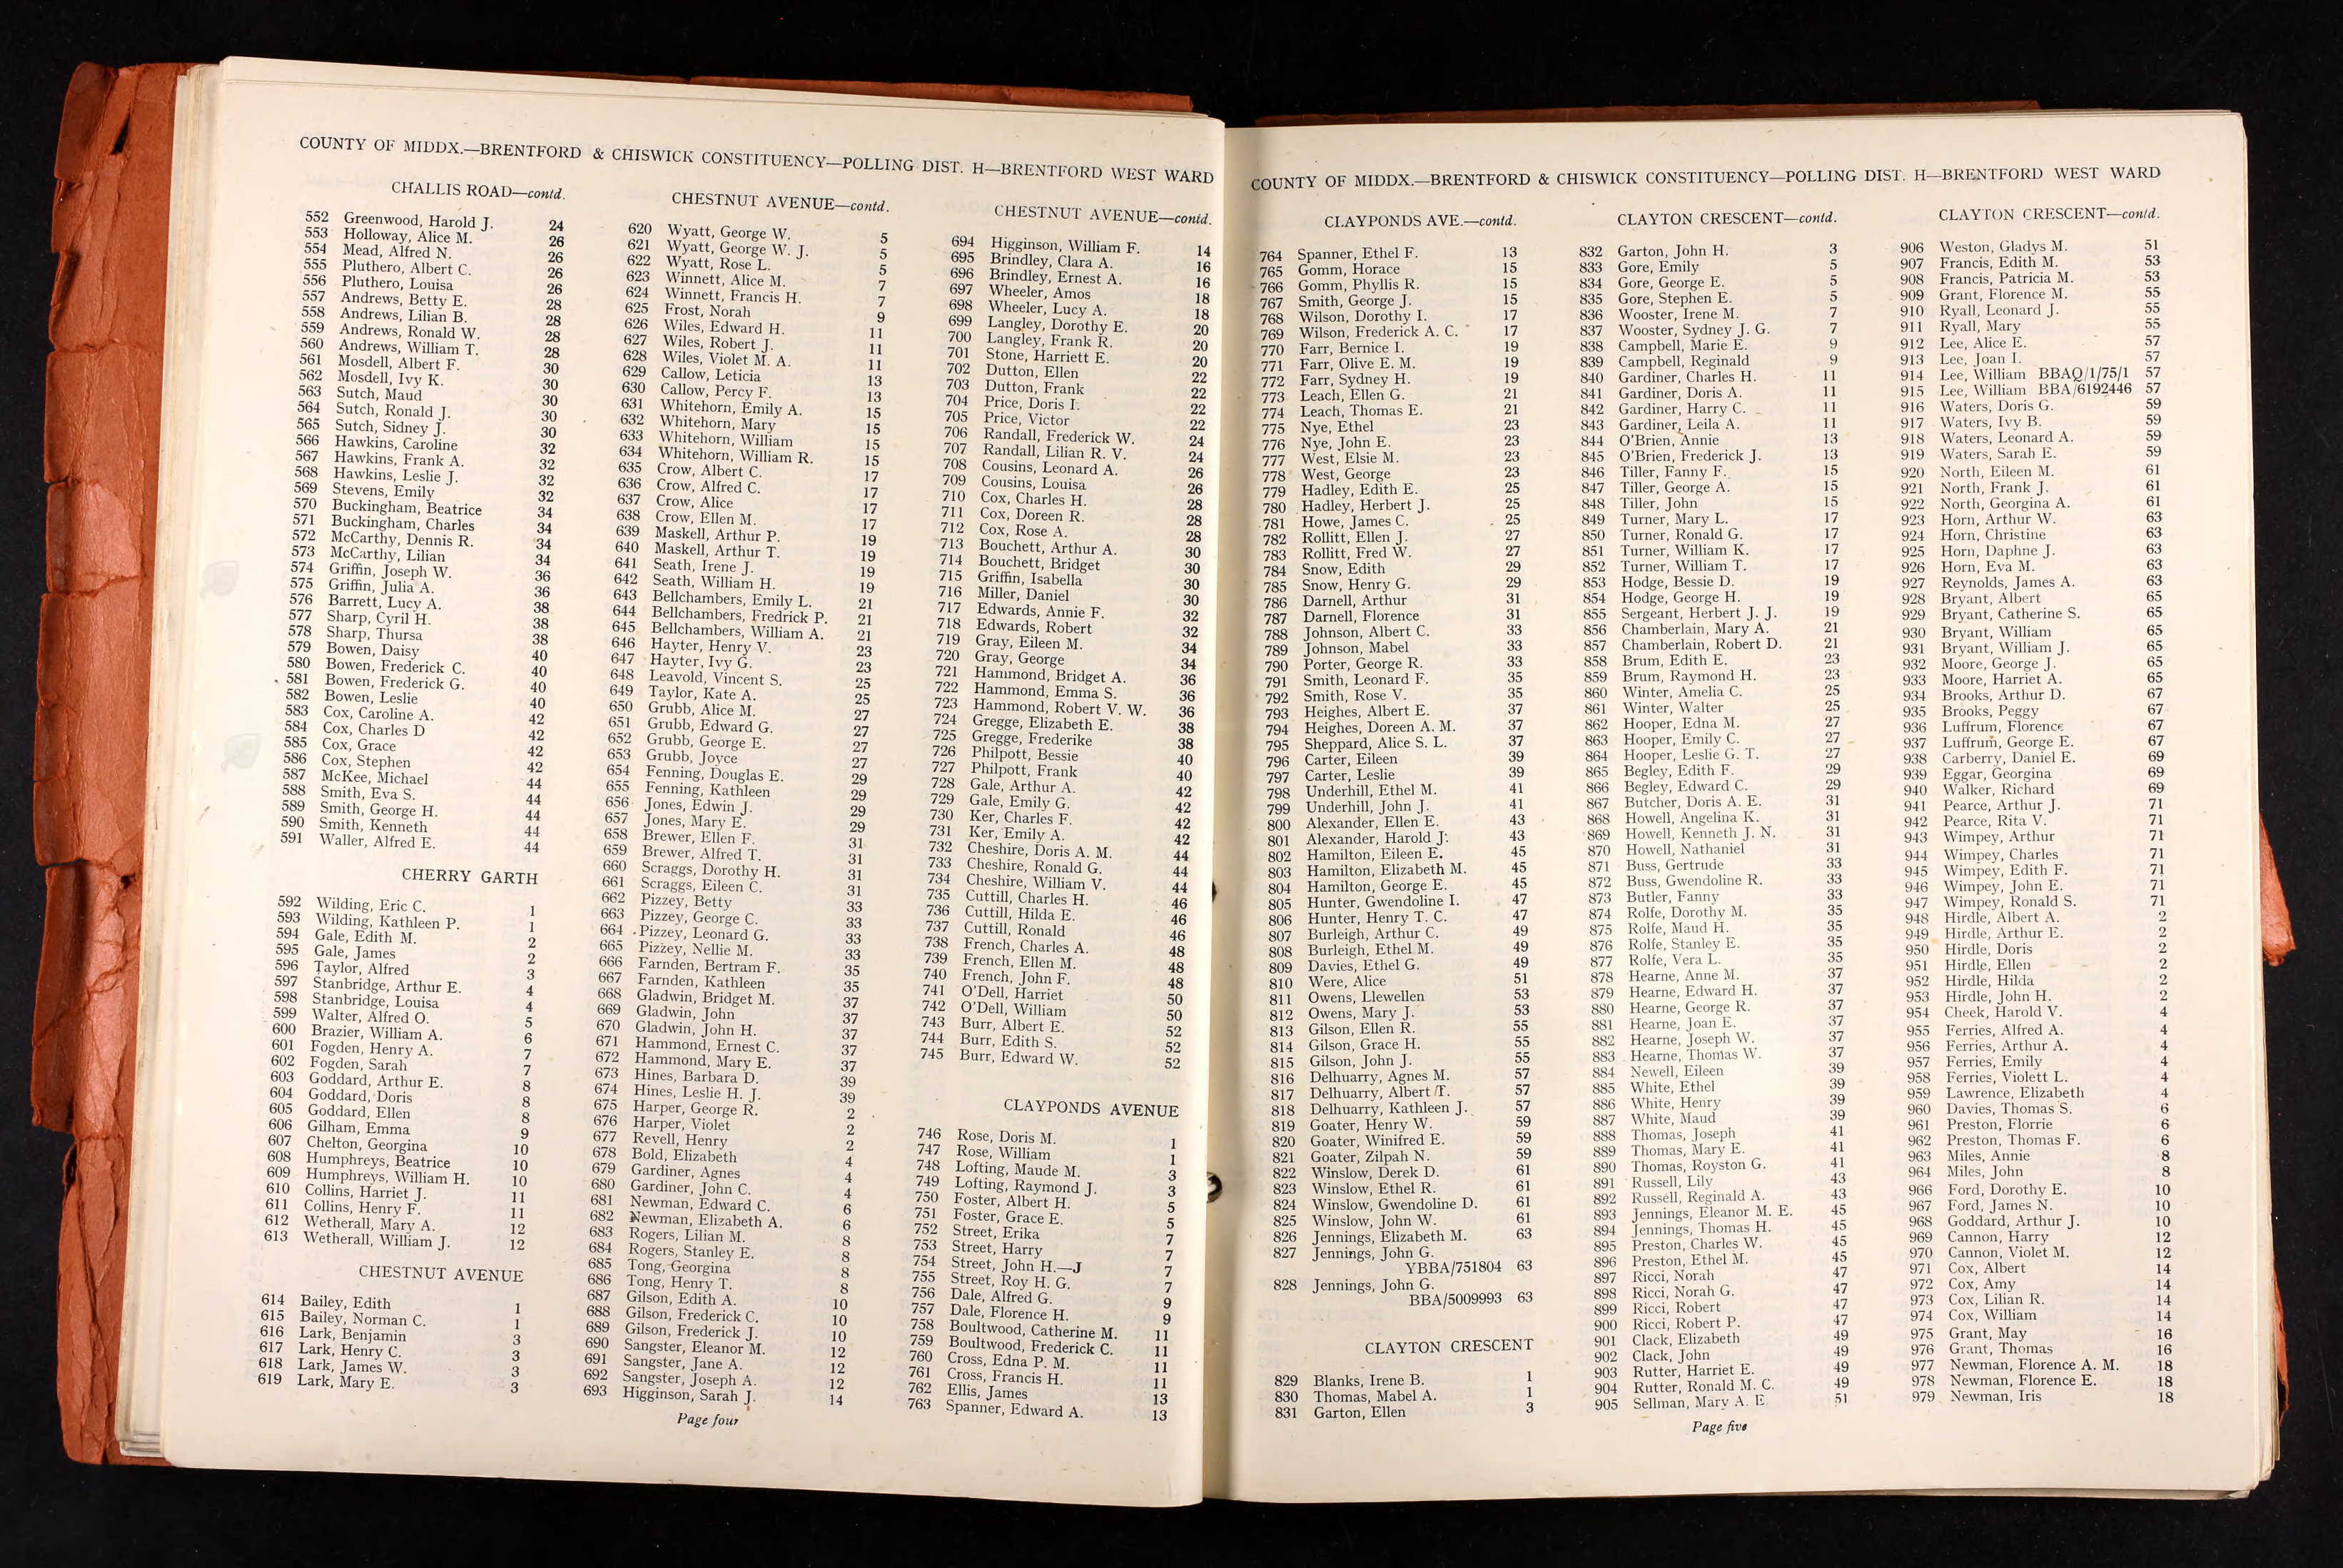 COUNTY OF MIDDX.—BRENTFORD & CHISWICK CONSTITUENCY—POLLING DIST. H—BRENTFORD WEST WARD
CHALLIS ROAD—contd.
552 Greenwood, Harold J. 24
553 Holloway, Alice M. 26
554 Mead, Alfred N. 26
555 Pluthero, Albert C. 26
556 Pluthero, Louisa 26
557 Andrews, Betty E. 28
558 Andrews, Lilian B. 28
559 Andrews, Ronald W. 28
560 Andrews, William T. 28
561 Mosdell, Albert F. 30
562 Mosdell, Ivy K. 30
563 Sutch, Maud 30
564 Sutch, Ronald J. 30
565 Sutch, Sidney J. 30
566 Hawkins, Caroline 32
567 Hawkins, Frank A. 32
568 Hawkins, Leslie J. 32
569 Stevens, Emily 32
570 Buckingham, Beatrice 34
571 Buckingham, Charles 34
572 McCarthy, Dennis R. 34
573 McCarthy, Lilian 34
574 Griffin, Joseph W. 36
575 Griffin, Julia A. 36
576 Barrett, Lucy A. 38
577 Sharp, Cyril H. 38
578 Sharp, Thursa 38
579 Bowen, Daisy 40
580 Bowen, Frederick C. 40
581 Bowen, Frederick G. 40
582 Bowen, Leslie 40
583 Cox, Caroline A. 42
584 Cox, Charles D 42
585 Cox, Grace 42
586 Cox, Stephen 42
587 McKee, Michael 44
588 Smith, Eva S. 44
589 Smith, George H. 44
590 Smith, Kenneth 44
591 Waller, Alfred E. 44
CHERRY GARTH
592 Wilding, Eric C. 1
593 Wilding, Kathleen P. 1
594 Gale, Edith M. 2
595 Gale, James 2
596 Taylor, Alfred 3
597 Stanbridge, Arthur E. 4
598 Stanbridge, Louisa 4
599 Walter, Alfred O. 5
600 Brazier, William A. 6
601 Fogden, Henry A. 7
602 Fogden, Sarah 7
603 Goddard, Arthur E. 8
604 Goddard, Doris 8
605 Goddard, Ellen 8
606 Gilham, Emma 9
607 Chelton, Georgina 10
608 Humphreys, Beatrice 10
609 Humphreys, William H. 10
610 Collins, Harriet J. 11
611 Collins, Henry F. 11
612 Wetherall, Mary A. 12
613 Wetherall, William J. 12
CHESTNUT AVENUE
614 Bailey, Edith 1
615 Bailey, Norman C. 1
616 Lark, Benjamin 3
617 Lark, Henry C. 3
618 Lark, James W. 3
619 Lark, Mary E. 3
CHESTNUT AVENUE—contd.
620 Wyatt, George W. 5
621 Wyatt, George W. J. 5
622 Wyatt, Rose L. 5
623 Winnett, Alice M. 7
624 Winnett, Francis H. 7
625 Frost, Norah 9
626 Wiles, Edward H. 11
627 Wiles, Robert J. 11
628 Wiles, Violet M. A. 11
629 Callow, Leticia 13
630 Callow, Percy F. 13
631 Whitehorn, Emily A. 15
632 Whitehorn, Mary 15
633 Whitehorn, William 15
634 Whitehorn, William R. 15
635 Crow, Albert C. 17
636 Crow, Alfred C. 17
637 Crow, Alice 17
638 Crow, Ellen M. 17
639 Maskell, Arthur P. 19
640 Maskell, Arthur T. 19
641 Seath, Irene J. 19
642 Seath, William H. 19
643 Bellchambers, Emily L. 21
644 Bellchambers, Fredrick P. 21
645 Bellchambers, William A. 21
646 Hayter, Henry V. 23
647 Hayter, Ivy G. 23
648 Leavold, Vincent S. 25
649 Taylor, Kate A. 25
650 Grubb, Alice M. 27
651 Grubb, Edward G. 27
652 Grubb, George E. 27
653 Grubb, Joyce 27
654 Fenning, Douglas E. 29
655 Fenning, Kathleen 29
656 Jones, Edwin J. 29
657 Jones, Mary E. 29
658 Brewer, Ellen F. 31
659 Brewer, Alfred T. 31
660 Scraggs, Dorothy H. 31
661 Scraggs, Eileen C. 31
662 Pizzey, Betty 33
663 Pizzey, George C. 33
664 Pizzey, Leonard G. 33
665 Pizzey, Nellie M. 33
666 Farnden, Bertram F. 35
667 Farnden, Kathleen 35
668 Gladwin, Bridget M. 37
669 Gladwin, John 37
670 Gladwin, John H. 37
671 Hammond, Ernest C. 37
672 Hammond, Mary E. 37
673 Hines, Barbara D. 39
674 Hines, Leslie H. J. 39
675 Harper, George R. 2
676 Harper, Violet 2
677 Revell, Henry 2
678 Bold, Elizabeth 4
679 Gardiner, Agnes 4
680 Gardiner, John C. 4
681 Newman, Edward C. 6
682 Newman, Elizabeth A. 6
683 Rogers, Lilian M. 8
684 Rogers, Stanley E. 8
685 Tong, Georgina 8
686 Tong, Henry T. 8
687 Gilson, Edith A. 10
688 Gilson, Frederick C. 10
689 Gilson, Frederick J. 10
690 Sangster, Eleanor M. 12
691 Sangster, Jane A. 12
692 Sangster, Joseph A. 12
693 Higginson, Sarah J. 14
CHESTNUT AVENUE—contd.
694 Higginson, William F. 14
695 Brindley, Clara A. 16
696 Brindley, Ernest A. 16
697 Wheeler, Amos 18
698 Wheeler, Lucy A. 18
699 Langley, Dorothy E. 20
700 Langley, Frank R. 20
701 Stone, Harriett E. 20
702 Dutton, Ellen 22
703 Dutton, Frank 22
704 Price, Doris I. 22
705 Price, Victor 22
706 Randall, Frederick W. 24
707 Randall, Lilian R. V. 24
708 Cousins, Leonard A. 26
709 Cousins, Louisa 26
710 Cox, Charles H. 28
711 Cox, Doreen R. 28
712 Cox, Rose A. 28
713 Bouchett, Arthur A. 30
714 Bouchett, Bridget 30
715 Griffin, Isabella 30
716 Miller, Daniel 30
717 Edwards, Annie F. 32
718 Edwards, Robert 32
719 Gray, Eileen M. 34
720 Gray, George 34
721 Hammond, Bridget A. 36
722 Hammond, Emma S. 36
723 Hammond, Robert V. W. 36
724 Gregge, Elizabeth E. 38
725 Gregge, Frederike 38
726 Philpott, Bessie 40
727 Philpott, Frank 40
728 Gale, Arthur A. 42
729 Gale, Emily G. 42
730 Ker, Charles F. 42
731 Ker, Emily A. 42
732 Cheshire, Doris A. M. 44
733 Cheshire, Ronald G. 44
734 Cheshire, William V. 44
735 Cuttill, Charles H. 46
736 Cuttill, Hilda E. 46
737 Cuttill, Ronald 46
738 French, Charles A. 48
739 French, Ellen M. 48
740 French, John F. 48
741 O'Dell, Harriet 50
742 O'Dell, William 50
743 Burr, Albert E. 52
744 Burr, Edith S. 52
745 Burr, Edward W. 52
CLAYPONDS AVENUE
746 Rose, Doris M. 1
747 Rose, William 1
748 Lofting, Maude M. 3
749 Lofting, Raymond J. 3
750 Foster, Albert H. 5
751 Foster, Grace E. 5
752 Street, Erika 7
753 Street, Harry 7
754 Street, John H.—J 7
755 Street, Roy H. G. 7
756 Dale, Alfred G. 9
757 Dale, Florence H. 9
758 Boultwood, Catherine M. 11
759 Boultwood, Frederick C. 11
760 Cross, Edna P. M. 11
761 Cross, Francis H. 11
762 Ellis, James 13
763 Spanner, Edward A. 13
Page four
COUNTY OF MIDDX.—BRENTFORD & CHISWICK CONSTITUENCY—POLLING DIST. H—BRENTFORD WEST WARD
CLAYPONDS AVE.—contd.
764 Spanner, Ethel F. 13
765 Gomm, Horace 15
766 Gomm, Phyllis R. 15
767 Smith, George J. 15
768 Wilson, Dorothy I. 17
769 Wilson, Frederick A. C. 17
770 Farr, Bernice I. 19
771 Farr, Olive E. M. 19
772 Farr, Sydney H. 19
773 Leach, Ellen G. 21
774 Leach, Thomas E. 21
775 Nye, Ethel 23
776 Nye, John E. 23
777 West, Elsie M. 23
778 West, George 23
779 Hadley, Edith E. 25
780 Hadley, Herbert J. 25
781 Howe, James C. 25
782 Rollitt, Ellen J. 27
783 Rollitt, Fred W. 27
784 Snow, Edith 29
785 Snow, Henry G. 29
786 Darnell, Arthur 31
787 Darnell, Florence 31
788 Johnson, Albert C. 33
789 Johnson, Mabel 33
790 Porter, George R. 33
791 Smith, Leonard F. 35
792 Smith, Rose V. 35
793 Heighes, Albert E. 37
794 Heighes, Doreen A. M. 37
795 Sheppard, Alice S. L. 37
796 Carter, Eileen 39
797 Carter, Leslie 39
798 Underhill, Ethel M. 41
799 Underhill, John J. 41
800 Alexander, Ellen E. 43
801 Alexander, Harold J. 43
802 Hamilton, Eileen E. 45
803 Hamilton, Elizabeth M. 45
804 Hamilton, George E. 45
805 Hunter, Gwendoline I. 47
806 Hunter, Henry T. C. 47
807 Burleigh, Arthur C. 49
808 Burleigh, Ethel M. 49
809 Davies, Ethel G. 49
810 Were, Alice 51
811 Owens, Llewellen 53
812 Owens, Mary J. 53
813 Gilson, Ellen R. 55
814 Gilson, Grace H. 55
815 Gilson, John J. 55
816 Delhuarry, Agnes M. 57
817 Delhuarry, Albert T. 57
818 Delhuarry, Kathleen J. 57
819 Goater, Henry W. 59
820 Goater, Winifred E. 59
821 Goater, Zilpah N. 59
822 Winslow, Derek D. 61
823 Winslow, Ethel R. 61
824 Winslow, Gwendoline D. 61
825 Winslow, John W. 61
826 Jennings, Elizabeth M. 63
827 Jennings, John G.
YBBA/751804 63
828 Jennings, John G.
BBA/5009993 63
CLAYTON CRESCENT
829 Blanks, Irene B. 1
830 Thomas, Mabel A. 1
831 Garton, Ellen 3
CLAYTON CRESCENT—contd.
832 Garton, John H. 3
833 Gore, Emily 5
834 Gore, George E. 5
835 Gore, Stephen E. 5
836 Wooster, Irene M. 7
837 Wooster, Sydney J. G. 7
838 Campbell, Marie E. 9
839 Campbell, Reginald 9
840 Gardiner, Charles H. 11
841 Gardiner, Doris A. 11
842 Gardiner, Harry C. 11
843 Gardiner, Leila A. 11
844 O'Brien, Annie 13
845 O'Brien, Frederick J. 13
846 Tiller, Fanny F. 15
847 Tiller, George A. 15
848 Tiller, John 15
849 Turner, Mary L. 17
850 Turner, Ronald G. 17
851 Turner, William K. 17
852 Turner, William T. 17
853 Hodge, Bessie D. 19
854 Hodge, George H. 19
855 Sergeant, Herbert J. J. 19
856 Chamberlain, Mary A. 21
857 Chamberlain, Robert D. 21
858 Brum, Edith E. 23
859 Brum, Raymond H. 23
860 Winter, Amelia C. 25
861 Winter, Walter 25
862 Hooper, Edna M. 27
863 Hooper, Emily C. 27
864 Hooper, Leslie G. T. 27
865 Begley, Edith F. 29
866 Begley, Edward C. 29
867 Butcher, Doris A. E. 31
868 Howell, Angelina K. 31
869 Howell, Kenneth J. N. 31
870 Howell, Nathaniel 31
871 Buss, Gertrude 33
872 Buss, Gwendoline R. 33
873 Butler, Fanny 33
874 Rolfe, Dorothy M. 35
875 Rolfe, Maud H. 35
876 Rolfe, Stanley E. 35
877 Rolfe, Vera L. 35
878 Hearne, Anne M. 37
879 Hearne, Edward H. 37
880 Hearne, George R. 37
881 Hearne, Joan E. 37
882 Hearne, Joseph W. 37
883 Hearne, Thomas W. 37
884 Newell, Eileen 39
885 White, Ethel 39
886 White, Henry 39
887 White, Maud 39
888 Thomas, Joseph 41
889 Thomas, Mary E. 41
890 Thomas, Royston G. 41
891 Russell, Lily 43
892 Russell, Reginald A. 43
893 Jennings, Eleanor M. E. 45
894 Jennings, Thomas H. 45
895 Preston, Charles W. 45
896 Preston, Ethel M. 45
897 Ricci, Norah 47
898 Ricci, Norah G. 47
899 Ricci, Robert 47
900 Ricci, Robert P. 47
901 Clack, Elizabeth 49
902 Clack, John 49
903 Rutter, Harriet E. 49
904 Rutter, Ronald M. C. 49
905 Sellman, Mary A. E 51
CLAYTON CRESCENT—contd.
906 Weston, Gladys M. 51
907 Francis, Edith M. 53
908 Francis, Patricia M. 53
909 Grant, Florence M. 55
910 Ryall, Leonard J. 55
911 Ryall, Mary 55
912 Lee, Alice E. 57
913 Lee, Joan I. 57
914 Lee, William BBAQ/1/75/1 57
915 Lee, William BBA/6192446 57
916 Waters, Doris G. 59
917 Waters, Ivy B. 59
918 Waters, Leonard A. 59
919 Waters, Sarah E. 59
920 North, Eileen M. 61
921 North, Frank J. 61
922 North, Georgina A. 61
923 Horn, Arthur W. 63
924 Horn, Christine 63
925 Horn, Daphne J. 63
926 Horn, Eva M. 63
927 Reynolds, James A. 63
928 Bryant, Albert 65
929 Bryant, Catherine S. 65
930 Bryant, William 65
931 Bryant, William J. 65
932 Moore, George J. 65
933 Moore, Harriet A. 65
934 Brooks, Arthur D. 67
935 Brooks, Peggy 67
936 Luffrum, Florence 67
937 Luffrum, George E. 67
938 Carberry, Daniel E. 69
939 Eggar, Georgina 69
940 Walker, Richard 69
941 Pearce, Arthur J. 71
942 Pearce, Rita V. 71
943 Wimpey, Arthur 71
944 Wimpey, Charles 71
945 Wimpey, Edith F. 71
946 Wimpey, John E. 71
947 Wimpey, Ronald S. 71
948 Hirdle, Albert A. 2
949 Hirdle, Arthur E. 2
950 Hirdle, Doris 2
951 Hirdle, Ellen 2
952 Hirdle, Hilda 2
953 Hirdle, John H. 2
954 Cheek, Harold V. 4
955 Ferries, Alfred A. 4
956 Ferries, Arthur A. 4
957 Ferries, Emily 4
958 Ferries, Violett L. 4
959 Lawrence, Elizabeth 4
960 Davies, Thomas S. 6
961 Preston, Florrie 6
962 Preston, Thomas F. 6
963 Miles, Annie 8
964 Miles, John 8
966 Ford, Dorothy E. 10
967 Ford, James N. 10
968 Goddard, Arthur J. 10
969 Cannon, Harry 12
970 Cannon, Violet M. 12
971 Cox, Albert 14
972 Cox, Amy 14
973 Cox, Lilian R. 14
974 Cox, William 14
975 Grant, May 16
976 Grant, Thomas 16
977 Newman, Florence A. M. 18
978 Newman, Florence E. 18
979 Newman, Iris 18
Page five